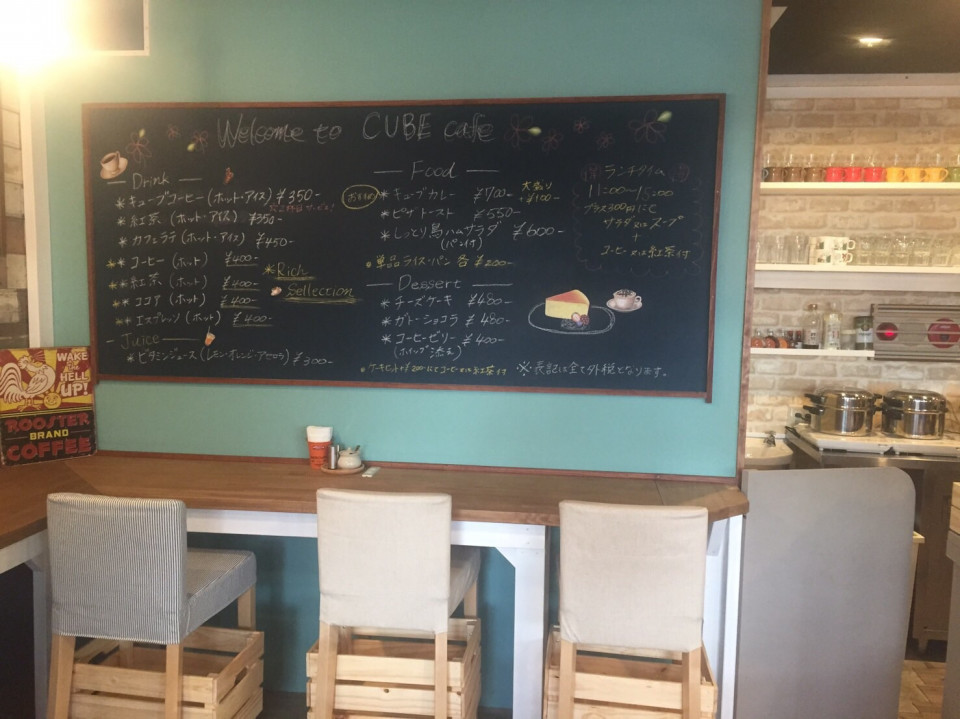 Welcome to CUBE cafe
Drink
*キューブコーヒー(ホット・アイス) ¥350-
*紅茶(ホット・アイス) ¥350-
*カフェラテ(ホット・アイス) ¥450-
*コーヒー(ホット) ¥400-
*紅茶(ホット) ¥400-
*ココア(ホット) ¥400-
*エスプレッソ(ホット) ¥400-
*Rich
Sellection
Juice
*ビタミンジュース(レモン・オレンジ・アセロラ) ¥300-
Food
おすすめ *キューブカレー ¥700- 大盛り +¥100-
*ピザトースト ¥550-
*しっとり鳥ハムサラダ ¥600-
(パン付)
単品ライス・パン 各¥200-
Dessert
*チーズケーキ ¥480-
*ガトーショコラ ¥480-
*コーヒーゼリー ¥400-
(ホイップ添え)
ケーキセット
コーヒー又は紅茶付
※表記は全て外税となります。
ランチタイム
11:00〜15:00
プラス300円にて
サラダ又はスープ
+
コーヒー又は紅茶付
WAKE
THE
HELL
UP!
ROOSTER
BRAND
COFFEE